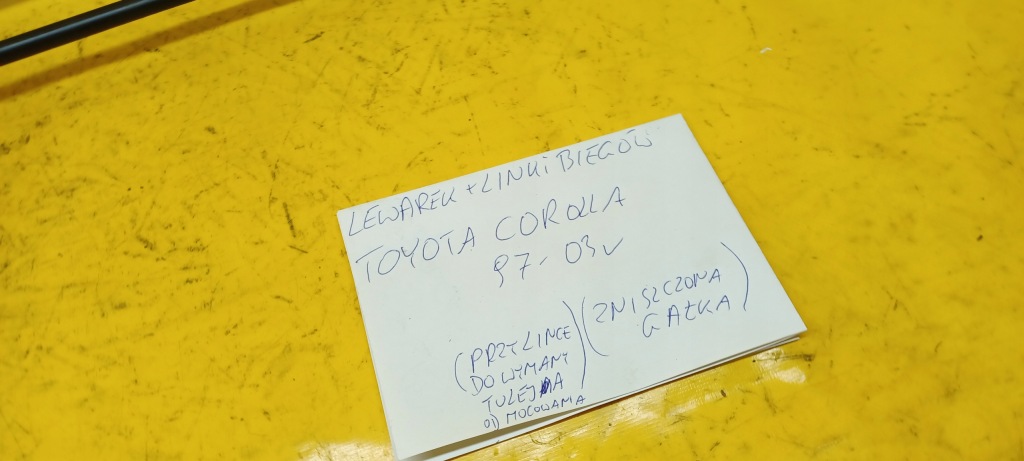 LEWAREK + LINKI BIEGÓW
TOYOTA COROLLA
97-03r
(PRZY LINCE
DO WYMIANY
TULEJKA
OD MOCOWANIA)
(ZNISZCZONA
GAŁKA)